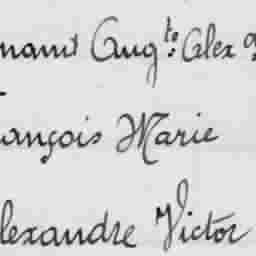 Aug.te Alex
ançois Marie
lexandre Victor